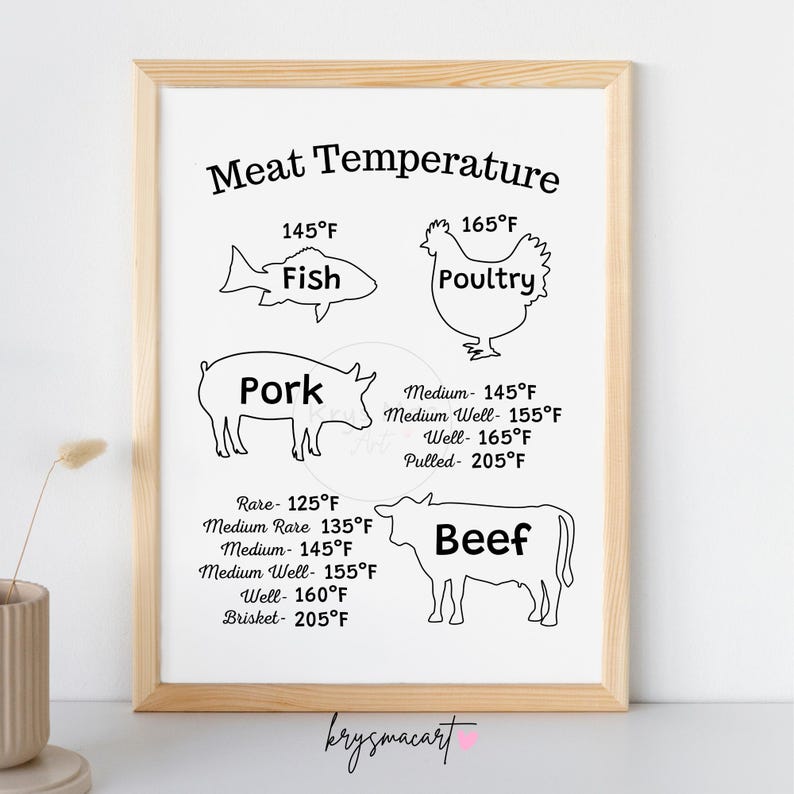 Meat Temperature
145°F
Fish
165°F
Poultry
Pork
Medium- 145°F
Medium Well- 155°F
Well- 165°F
Pulled- 205°F
Krys Mac
Art
Rare- 125°F
Medium Rare 135°F
Medium- 145°F
Medium Well- 155°F
Well- 160°F
Brisket- 205°F
Beef
krysmacart